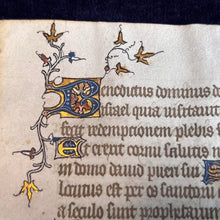 Benedictus dominus d
israel quia uisitaui
fecit redempcionem plebis
Et erexit cornu salutis n
in domo dauid pueri sui
Locutus est per os sanctoru
a seculo sunt prophetarum